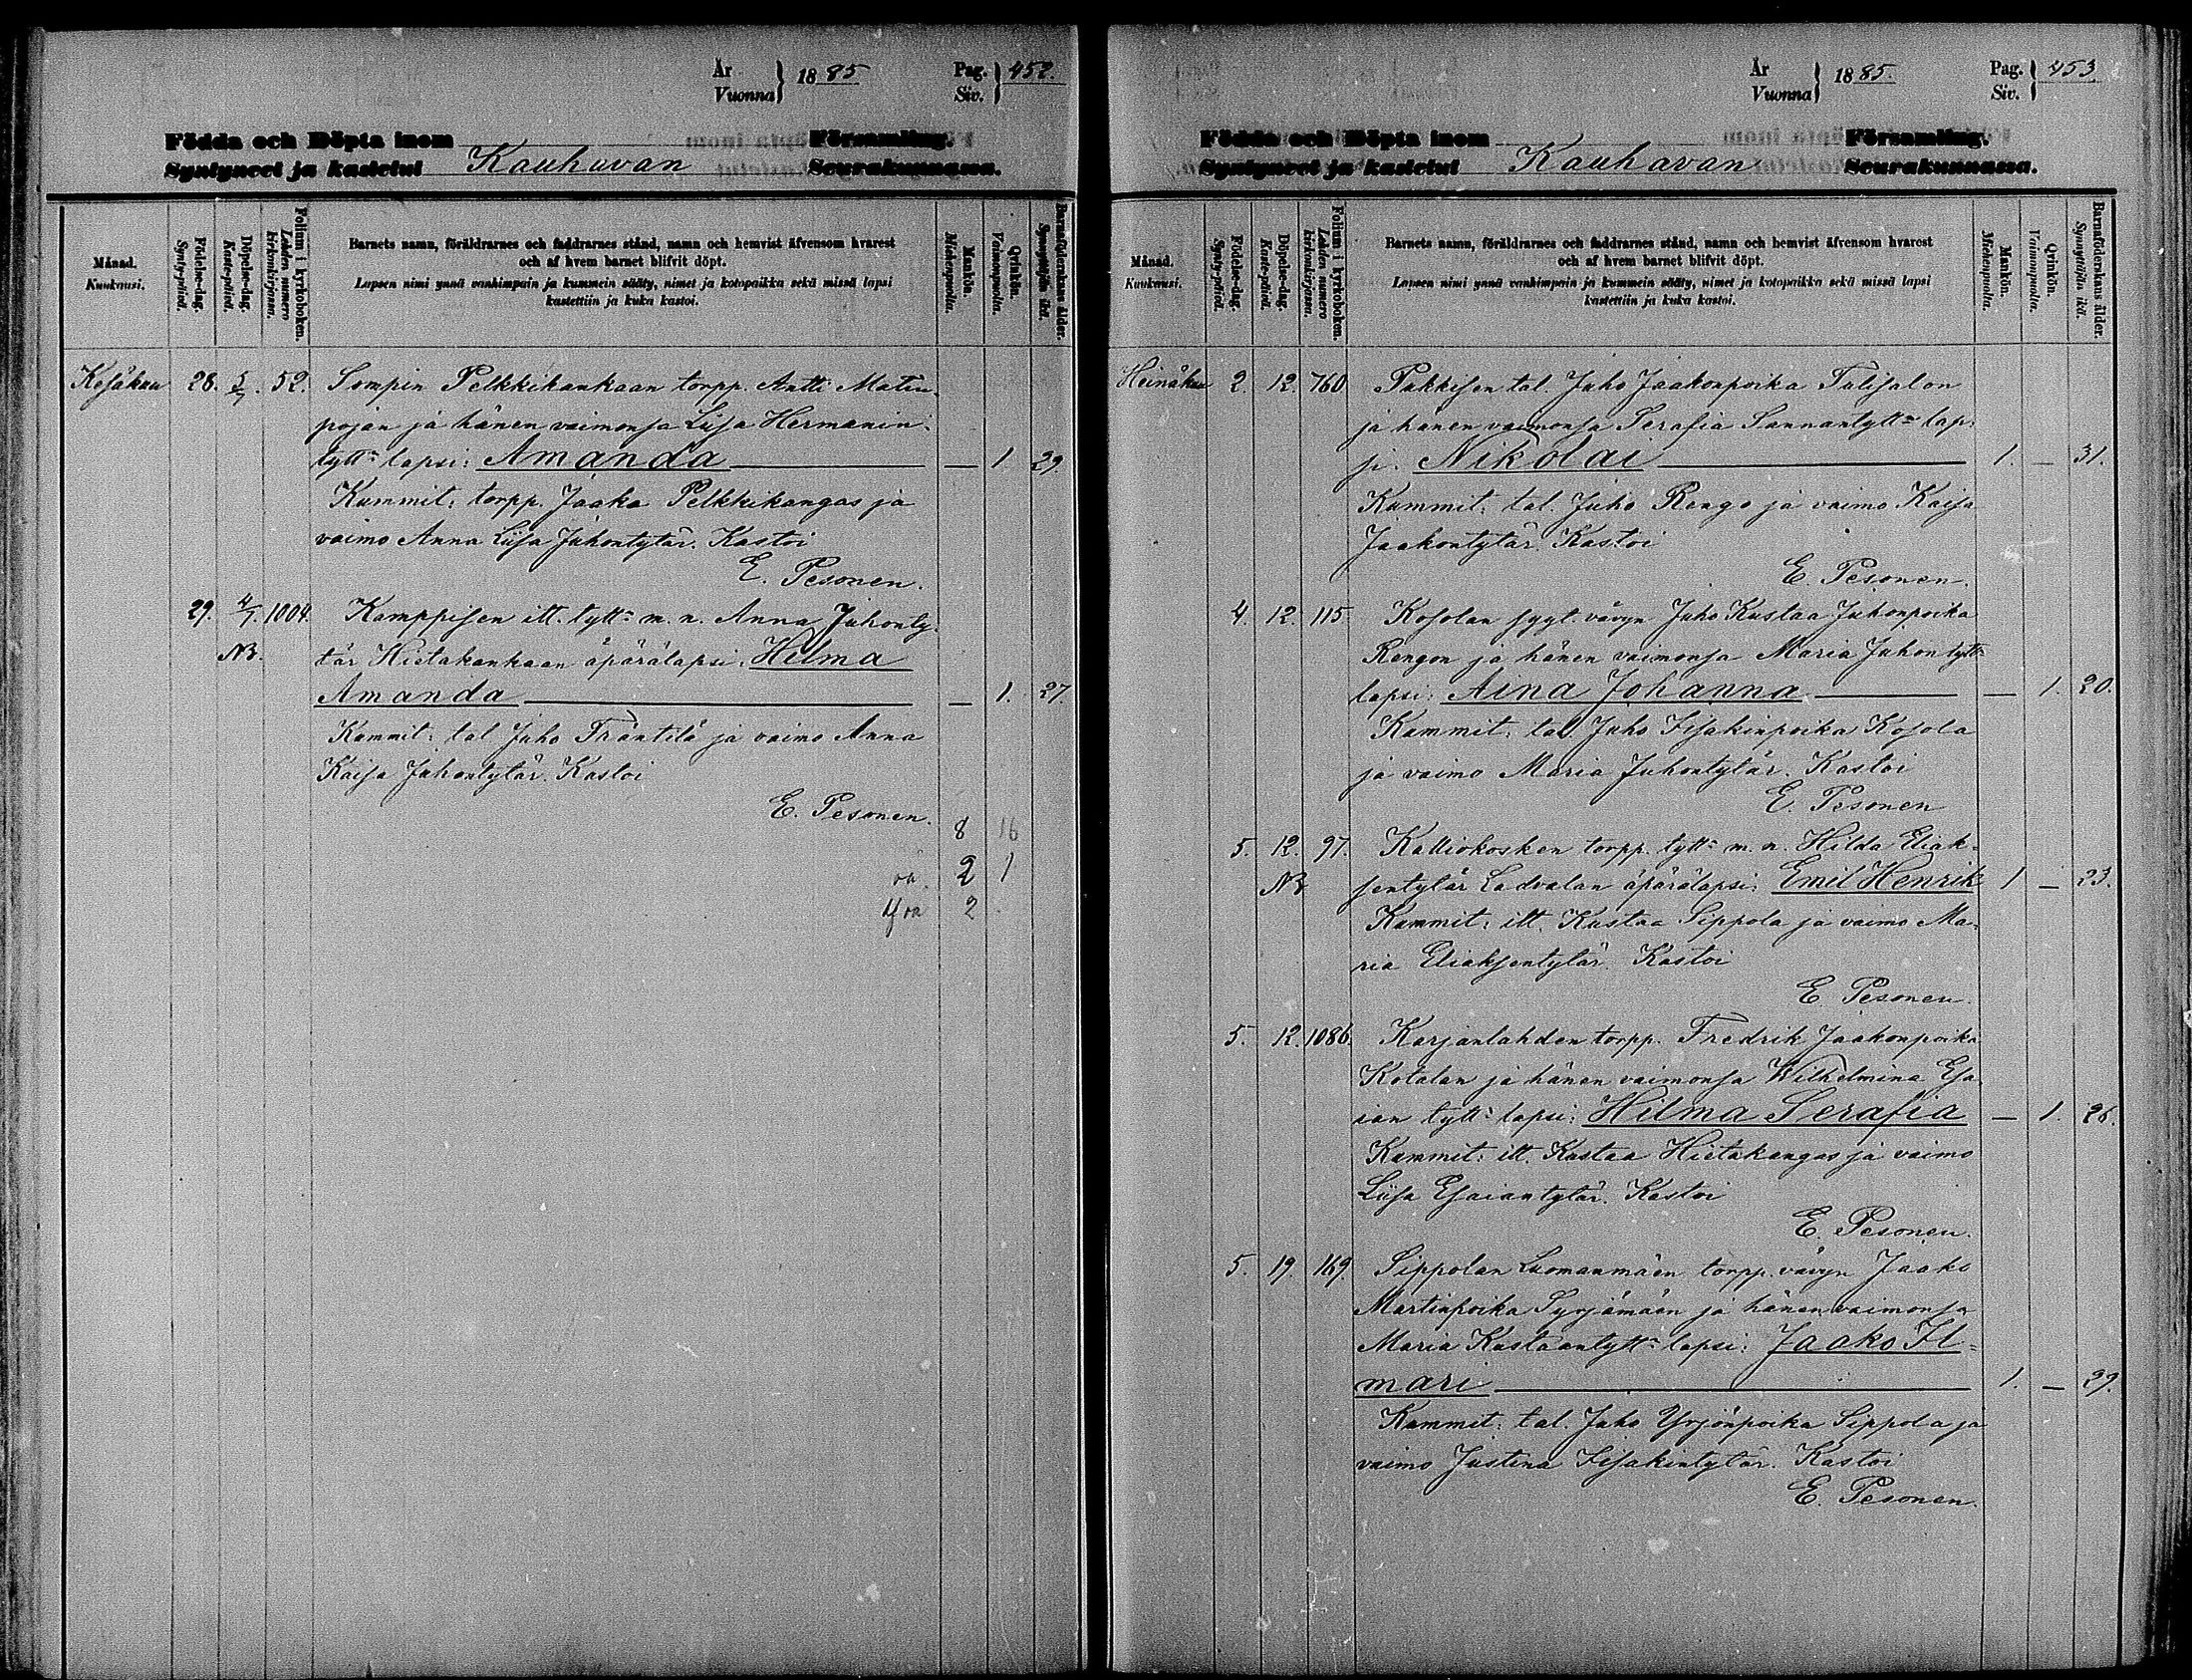 År
Vuonna } 1885 Pag.
Siv. } 452.
Födda och Döpta inom Församling.
Syntyneet ja kastetut Kauhavan Seurakunnassa.
Månad.
Kuukausi.
Födelse-dag.
Synty-päivä.
Döpelse-dag.
Kaste-päivä.
Folium i kyrkoboken.
Lehden numero kirkonkirjassa.
Barnets namn, föräldrarnes och faddrarnes stånd, namn och hemvist äfvensom hvarest
och af hvem barnet blifvit döpt.
Lapsen nimi ynnä vanhimpain ja kummein sääty, nimet ja kotopaikka sekä missä lapsi
kastettiin ja kuka kastoi.
Mankön.
Miehenpuolia.
Qvinkön.
Vaimonpuolia.
Barnaföderskans ålder.
Synnyttäjän ikä.
Kesäkuu 28. 5/7. 52. Sompin Pelkkikankaan torpp. Antti Matin-
pojan ja hänen vaimonsa Liisa Hermanin-
tytt: lapsi: Amanda — 1 29.
Kummit: torpp. Jaako Pelkkikangas ja
vaimo Anna Liisa Juhontytär. Kastoi
E. Pesonen.
29. 4/7. 1004. Kamppisen itt. tytt: m. n. Anna Juhonty-
NB. tär Hietakankaan äpärälapsi: Hilma
Amanda — 1. 27.
Kummit: tal Juho Fräntilä ja vaimo Anna
Kaisa Juhontytär. Kastoi
E. Pesonen.
8 16
2 1
2
År
Vuonna } 1885. Pag.
Siv. } 453
Födda och Döpta inom Församling.
Syntyneet ja kastetut Kauhavan Seurakunnassa.
Månad.
Kuukausi.
Födelse-dag.
Synty-päivä.
Döpelse-dag.
Kaste-päivä.
Folium i kyrkoboken.
Lehden numero kirkonkirjassa.
Barnets namn, föräldrarnes och faddrarnes stånd, namn och hemvist äfvensom hvarest
och af hvem barnet blifvit döpt.
Lapsen nimi ynnä vanhimpain ja kummein sääty, nimet ja kotopaikka sekä missä lapsi
kastettiin ja kuka kastoi.
Mankön.
Miehenpuolia.
Qvinkön.
Vaimonpuolia.
Barnaföderskans ålder.
Synnyttäjän ikä.
Heinäkuu 2. 12. 760. Pukkisen tal. Juho Jaakonpoika Talisalon
ja hänen vaimonsa Serafia Sannantytt: lap-
si: Nikolai 1. — 31.
Kummit: tal. Juho Rengo ja vaimo Kaisa
Jaakontytär. Kastoi
E. Pesonen.
4. 12. 115. Kosolan sygt. vävyn Juho Kustaa Juhonpoika
Rengon ja hänen vaimonsa Maria Juhontytt:
lapsi: Aina Johanna — 1. 20.
Kummit: tal. Juho Iisakinpoika Kosola
ja vaimo Maria Juhontytär. Kastoi
E. Pesonen
5. 12. 97. Kalliokosken torpp. tytt: m. n. Hilda Eliak-
NB. sentytär Ladvalan äpärälapsi: Emil Henrik 1 — 23.
Kummit: itt. Kustaa Sippola ja vaimo Ma-
ria Eliaksentytär. Kastoi
E Pesonen.
5. 12. 1086. Karjanlahden torpp. Fredrik Jaakonpoika
Kotalan ja hänen vaimonsa Wilhelmina Esa-
ian tytt: lapsi: Hilma Serafia — 1. 26.
Kummit: itt. Kustaa Hietakangas ja vaimo
Liisa Esaiantytär. Kastoi
E. Pesonen.
5. 19. 169. Sippolan Luomanmäen torpp. vävyn Jaako
Martinpoika Syrjämäen ja hänen vaimonsa
Maria Kustaantytt: lapsi: Jaako Il-
mari 1. — 29.
Kummit: tal. Juho Yrjönpoika Sippola ja
vaimo Justina Iisakintytär. Kastoi
E. Pesonen.